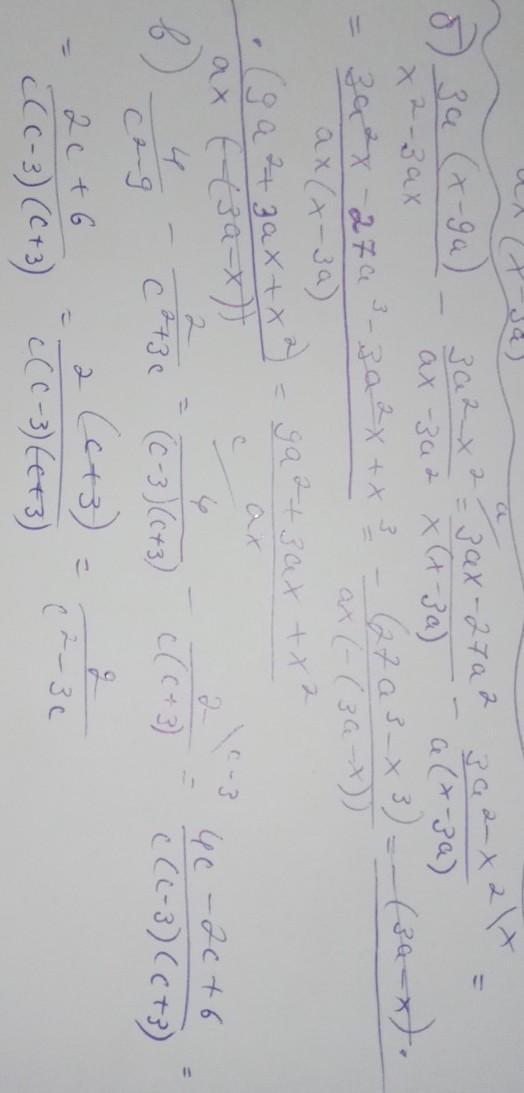 ax (x-3a)
б) \frac{3a(x-9a)}{x^2-3ax} - \frac{3a^2-x^2}{ax-3a^2} = \frac{3ax-27a^2}{x(x-3a)}^{/a} - \frac{3a^2-x^2}{a(x-3a)}^{\backslash x} =
= \frac{3a^2x-27a^3-3a^2x+x^3}{ax(x-3a)} = \frac{-(27a^3-x^3)}{ax(-(3a-x))} = -(3a-x)·
\frac{·(9a^2+3ax+x^2)}{ax(-(3a-x))} = \frac{9a^2+3ax+x^2}{ax}
в) \frac{4}{c^2-9} - \frac{2}{c^2+3c} = \frac{4}{(c-3)(c+3)}^{/c} - \frac{2}{c(c+3)}^{\backslash c-3} = \frac{4c-2c+6}{c(c-3)(c+3)} =
= \frac{2c+6}{c(c-3)(c+3)} = \frac{2(c+3)}{c(c-3)(c+3)} = \frac{2}{c^2-3c}